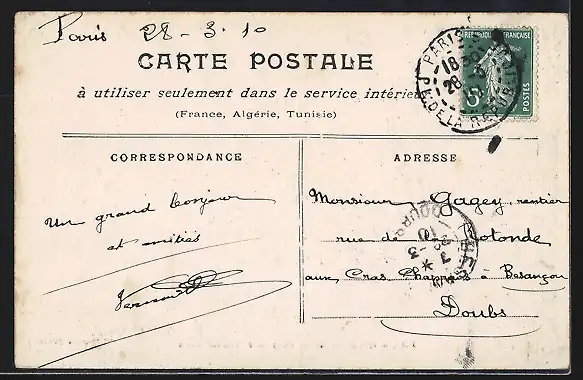 Paris 28-3-10
CARTE POSTALE
à utiliser seulement dans le service intérieur
(France, Algérie, Tunisie)
REPUBLIQUE FRANÇAISE
POSTES
PARIS
18
28
5
CORRESPONDANCE
ADRESSE
Un grand bonjour
et amitiés
Monsieur Gagey, rentier
rue de Rotonde
aux Cras Chaprais à Besançon
Doubs
DOUBS